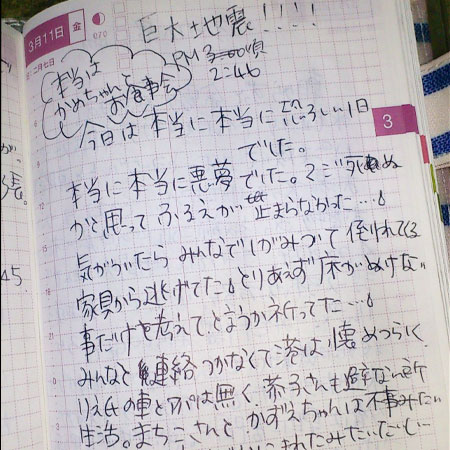 3月11日 金
070
旧・二月七日
巨大地震!!!!
PM 3:00頃
2:46
本当は
かめちゃん
お食事会
今日は本当に本当に恐ろしい1日
でした。
3
本当に本当に悪夢でした。マジ死ぬ
かと思ってふるえが止まらなかった…
気がついたらみんなでしがみついて倒れてくる
家具から逃げてた とりあえず床がぬけない
事だけを考えて、というか祈ってた…
みんなと連絡つかなくて港は懐めつらしく
りえ氏の車とアパは無く、恭子さんも避難所
生活。まちこさんとかずえちゃんは不事みたい
45